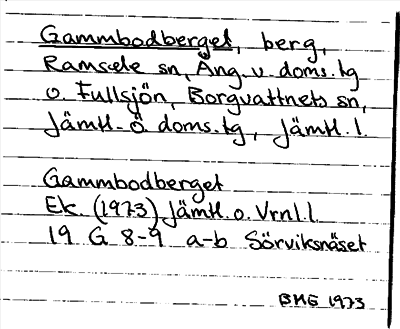 Gammbodberget, berg,
Ramsele sn, Ång. v. doms. tg
o. Fullsjön, Borgvattnets sn,
Jämtl. Ö. doms. tg, Jämtl. l.
Gammbodberget
Ek. (1973) Jämtl. o. Vrnl. l.
19 G 8-9 a-b Sörviksnäset
BMG 1973